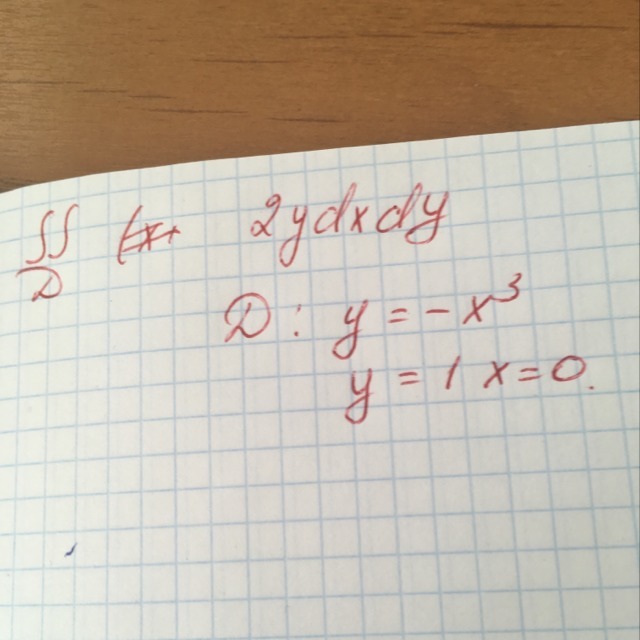 ∬ 2ydxdy
D
D: y = -x³
y = 1 x = 0.